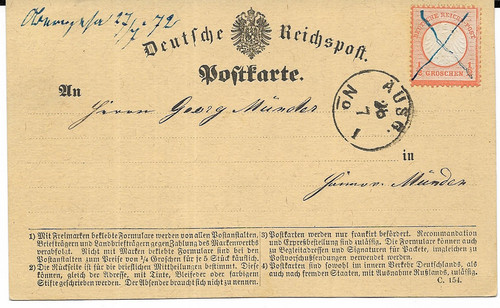 27/7 72
Deutsche Reichspost.
Postkarte.
An
Herrn Georg Münder
AUSG.
26
7
No 1
in
Hannov. Münden
1) Mit Freimarken beklebte Formulare werden von allen Postanstalten, Briefträgern und Landbriefträgern gegen Zahlung des Markenwerths verabfolgt. Nicht mit Marken beklebte Formulare sind bei den Postanstalten zum Preise von ¼ Groschen für je 5 Stück käuflich.
2) Die Rückseite ist für die brieflichen Mittheilungen bestimmt. Diese können, gleich der Adresse, mit Tinte, Bleifeder oder farbigem Stifte geschrieben werden. Der Absender braucht sich nicht zu nennen.
3) Postkarten werden nur frankirt befördert. Recommandation und Expreßbestellung sind zulässig. Die Formulare können auch zu Begleitadressen und Signaturen für Packete, imgleichen zu Postvorschußsendungen verwerthet werden.
4) Postkarten sind sowohl im innern Verkehr Deutschlands, als auch nach fremden Staaten, mit Ausnahme Rußlands, zulässig.
C. 154.